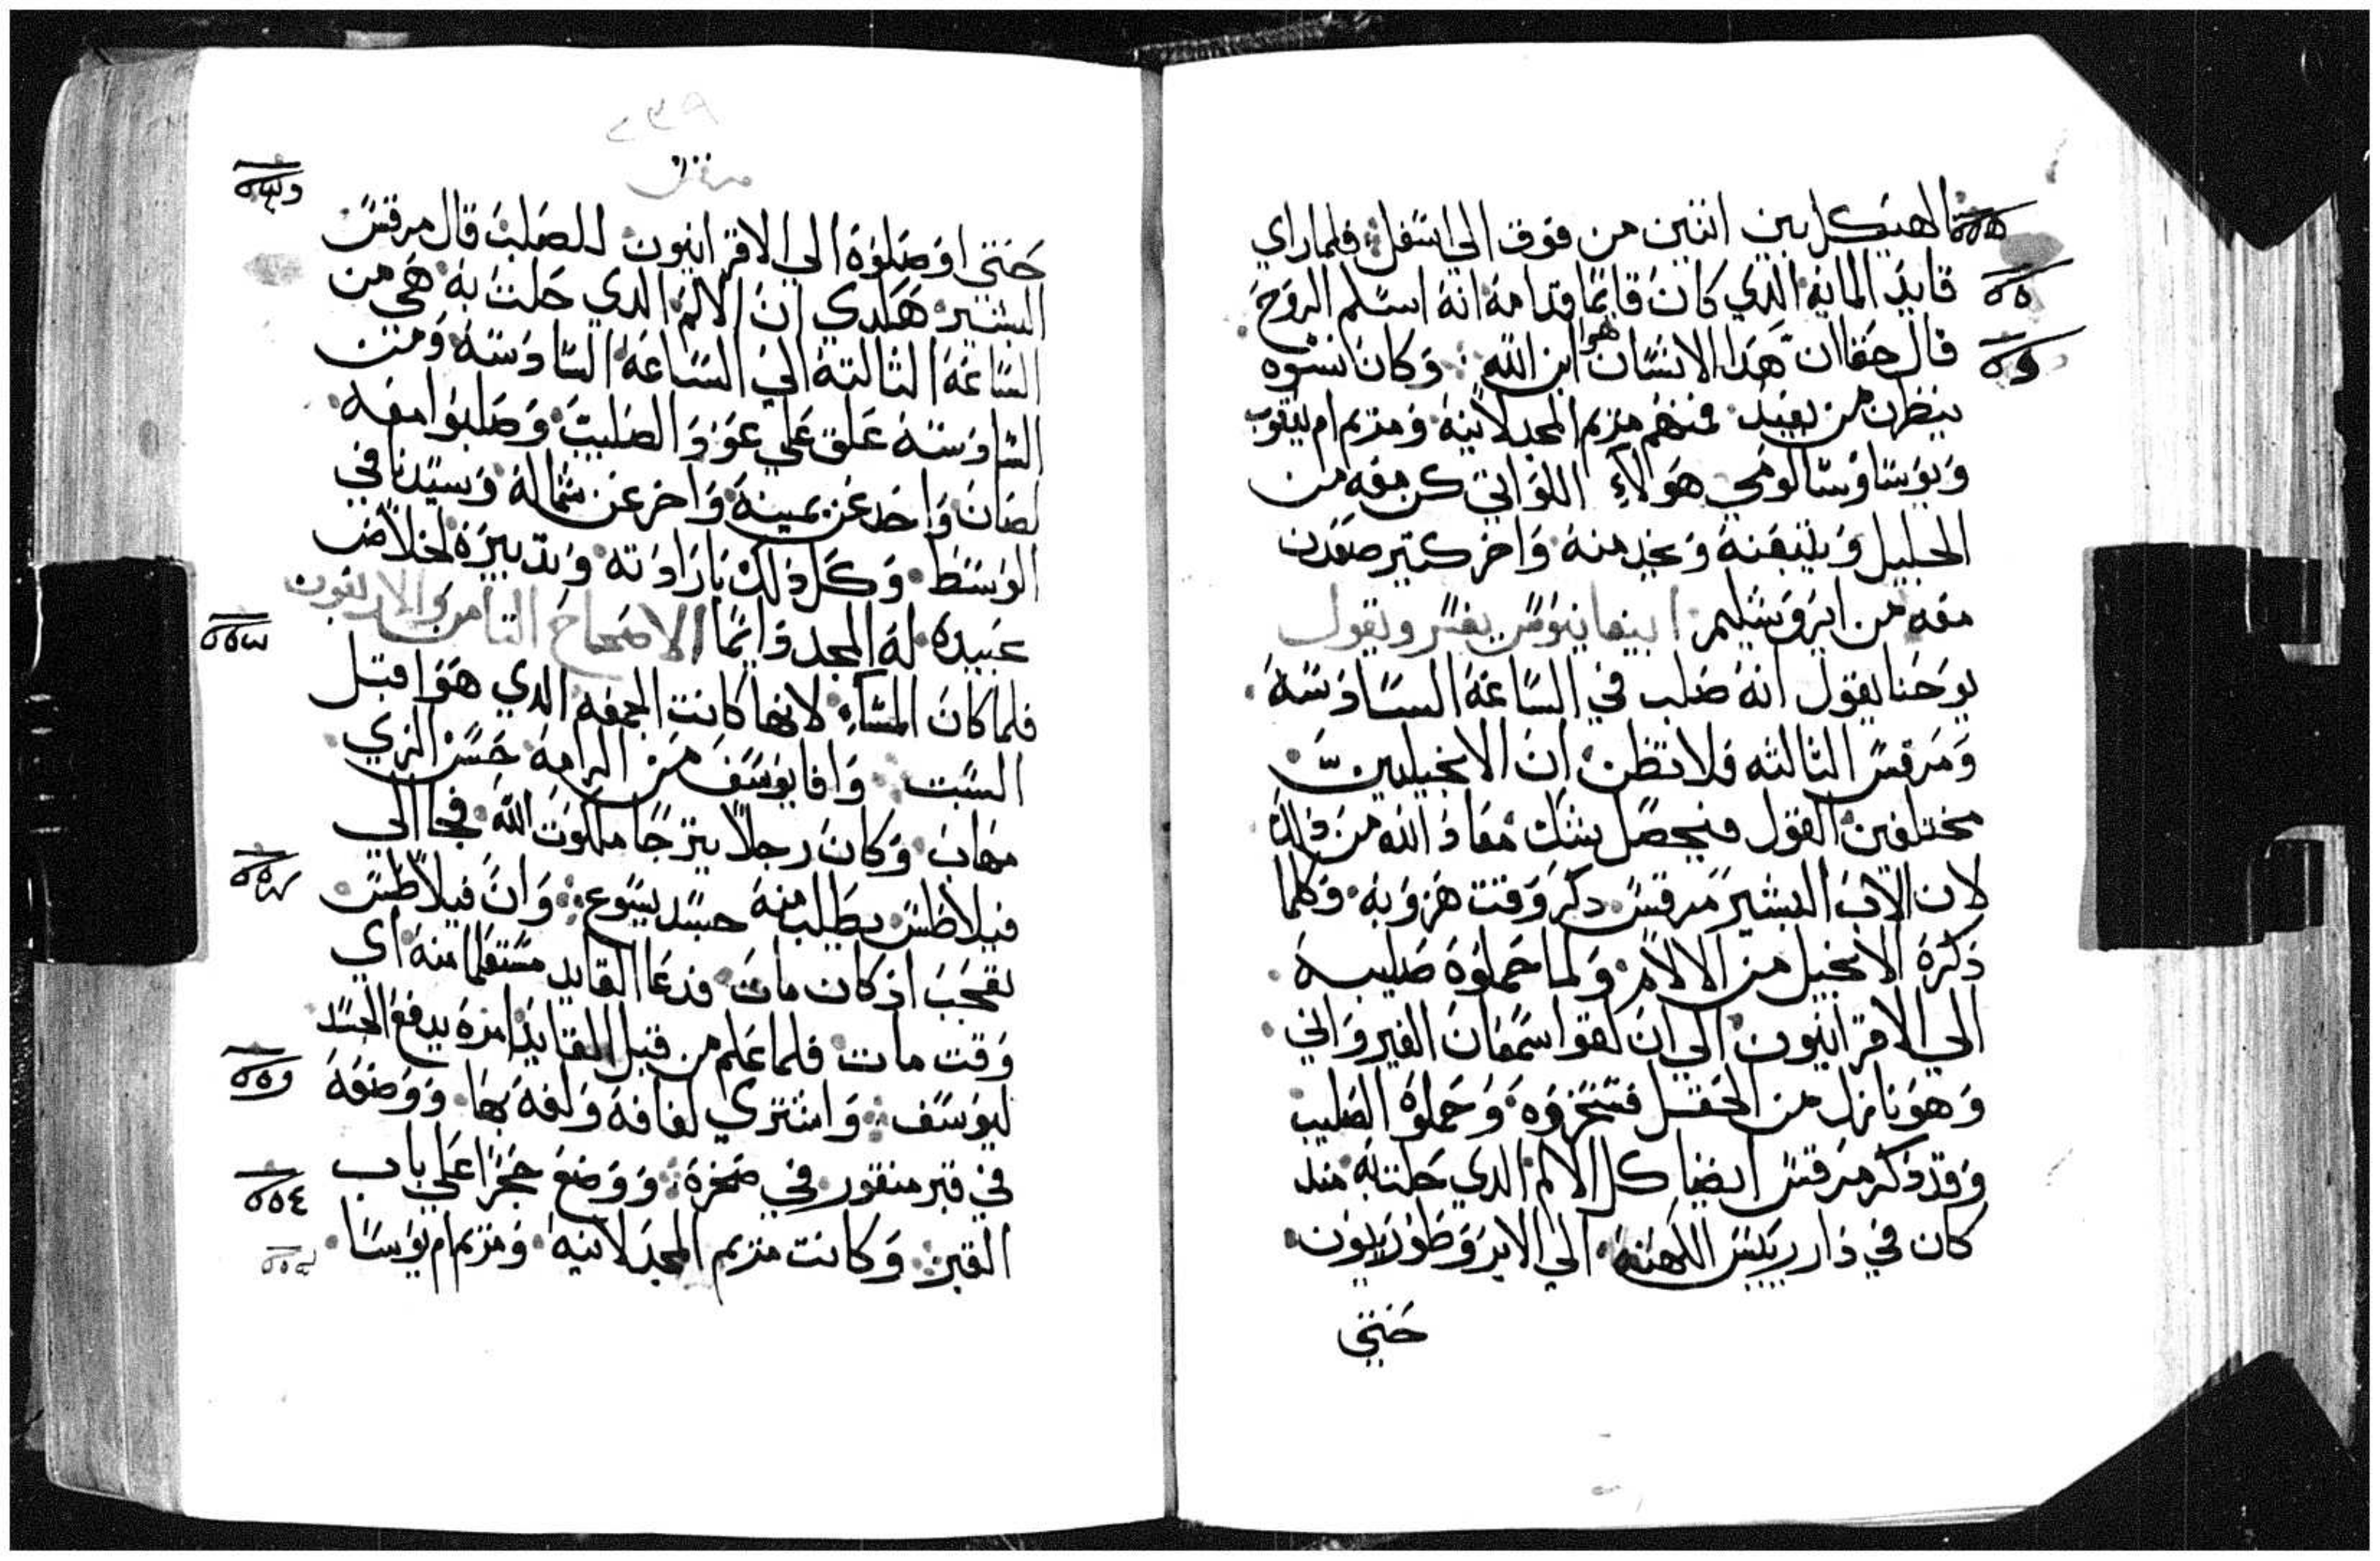 الهيكل بين اثنين من فوق الي اسفل فلما راي
قايد المايه الدي كان قايما قدامه انه اسلم الروح
قال حقا ان هدا الانسان هو ابن الله وكان نسوه
ينظرن من بعيد فمنهم مريم المجدلانيه ومريم ام يعقوب
ويوسا وسالومي هولاء اللواتي كن معه من
الجليل ويتبعنه ويخدمنه واخر كتير صعدن
معه من ايروشليم ابيفانيوس يفسر ويقول
يوحنا يقول انه صلب في الساعه السادسه
ومرقس التالته فلا تظن ان الانجيليين
مختلفين القول فيحصل بشك معاد الله من ذلك
لان الاب البشير مرقس دكر وقت هزو به وكلما
ذكره الانجيل من الالام ولما حملوه صليبه
الي الاقرانيون الي ان لقوا سمعان القيرواني
وهو نازل من الحقل فسخروه وحملوه الصليب
وقد ذكر مرقس ايضا كل الالم الدي حلت به مند
كان في دار رييس الكهنه الي الابروطوريون
حتي
٢٣٩
مرقس
حتي اوصلوه الي الاقرانيون للصلب قال مرقس
البشير هكدي ان الالم الدي حلت به هي من
الساعه التالته الي الساعه السادسه ومن
السادسه علق علي عود الصليب وصلبوا معه
لصان واحد عن يمينه واخر عن شماله وسيدنا في
الوسط وكل ذلك بارادته وتدبيره لخلاص
عبيده له المجد دايما الاصحاح التامن والاربعون
فلما كان المساء لانها كانت الجمعه الدي هو اقبل
السبت وافا يوسف من الرامه حسن الزي
مهاب وكان رجلا يترجا ملكوت الله فجا الي
فيلاطس يطلب منه جسد يسوع وان فيلاطس
تعجب اذ كان مات فدعا القايد مستعلما منه اي
وقت مات فلما علم من قبل القايد امره يدفع الجسد
ليوسف واشتري لفافه ولفه بها ووضعه
في قبر منقور في صخره ووضع حجرا علي باب
القبر وكانت مريم المجدلانيه ومريم ام يوسا